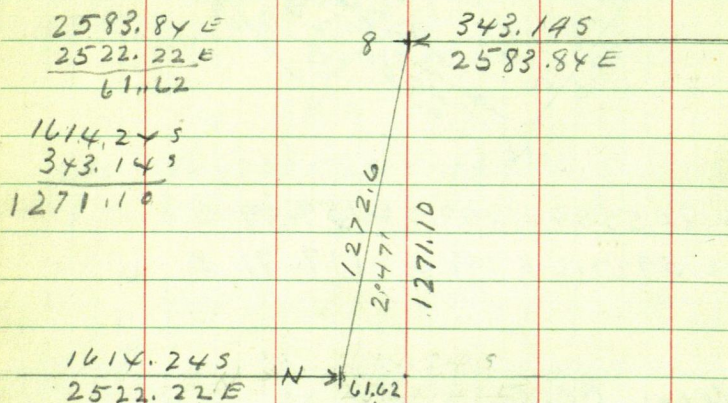 2583.84 E
2522.22 E
61.62
1614.24 S
343.14 S
1271.10
8
343.14 S
2583.84 E
1272.6
2°47'
1271.10
1614.24 S
2522.22 E
N
61.62